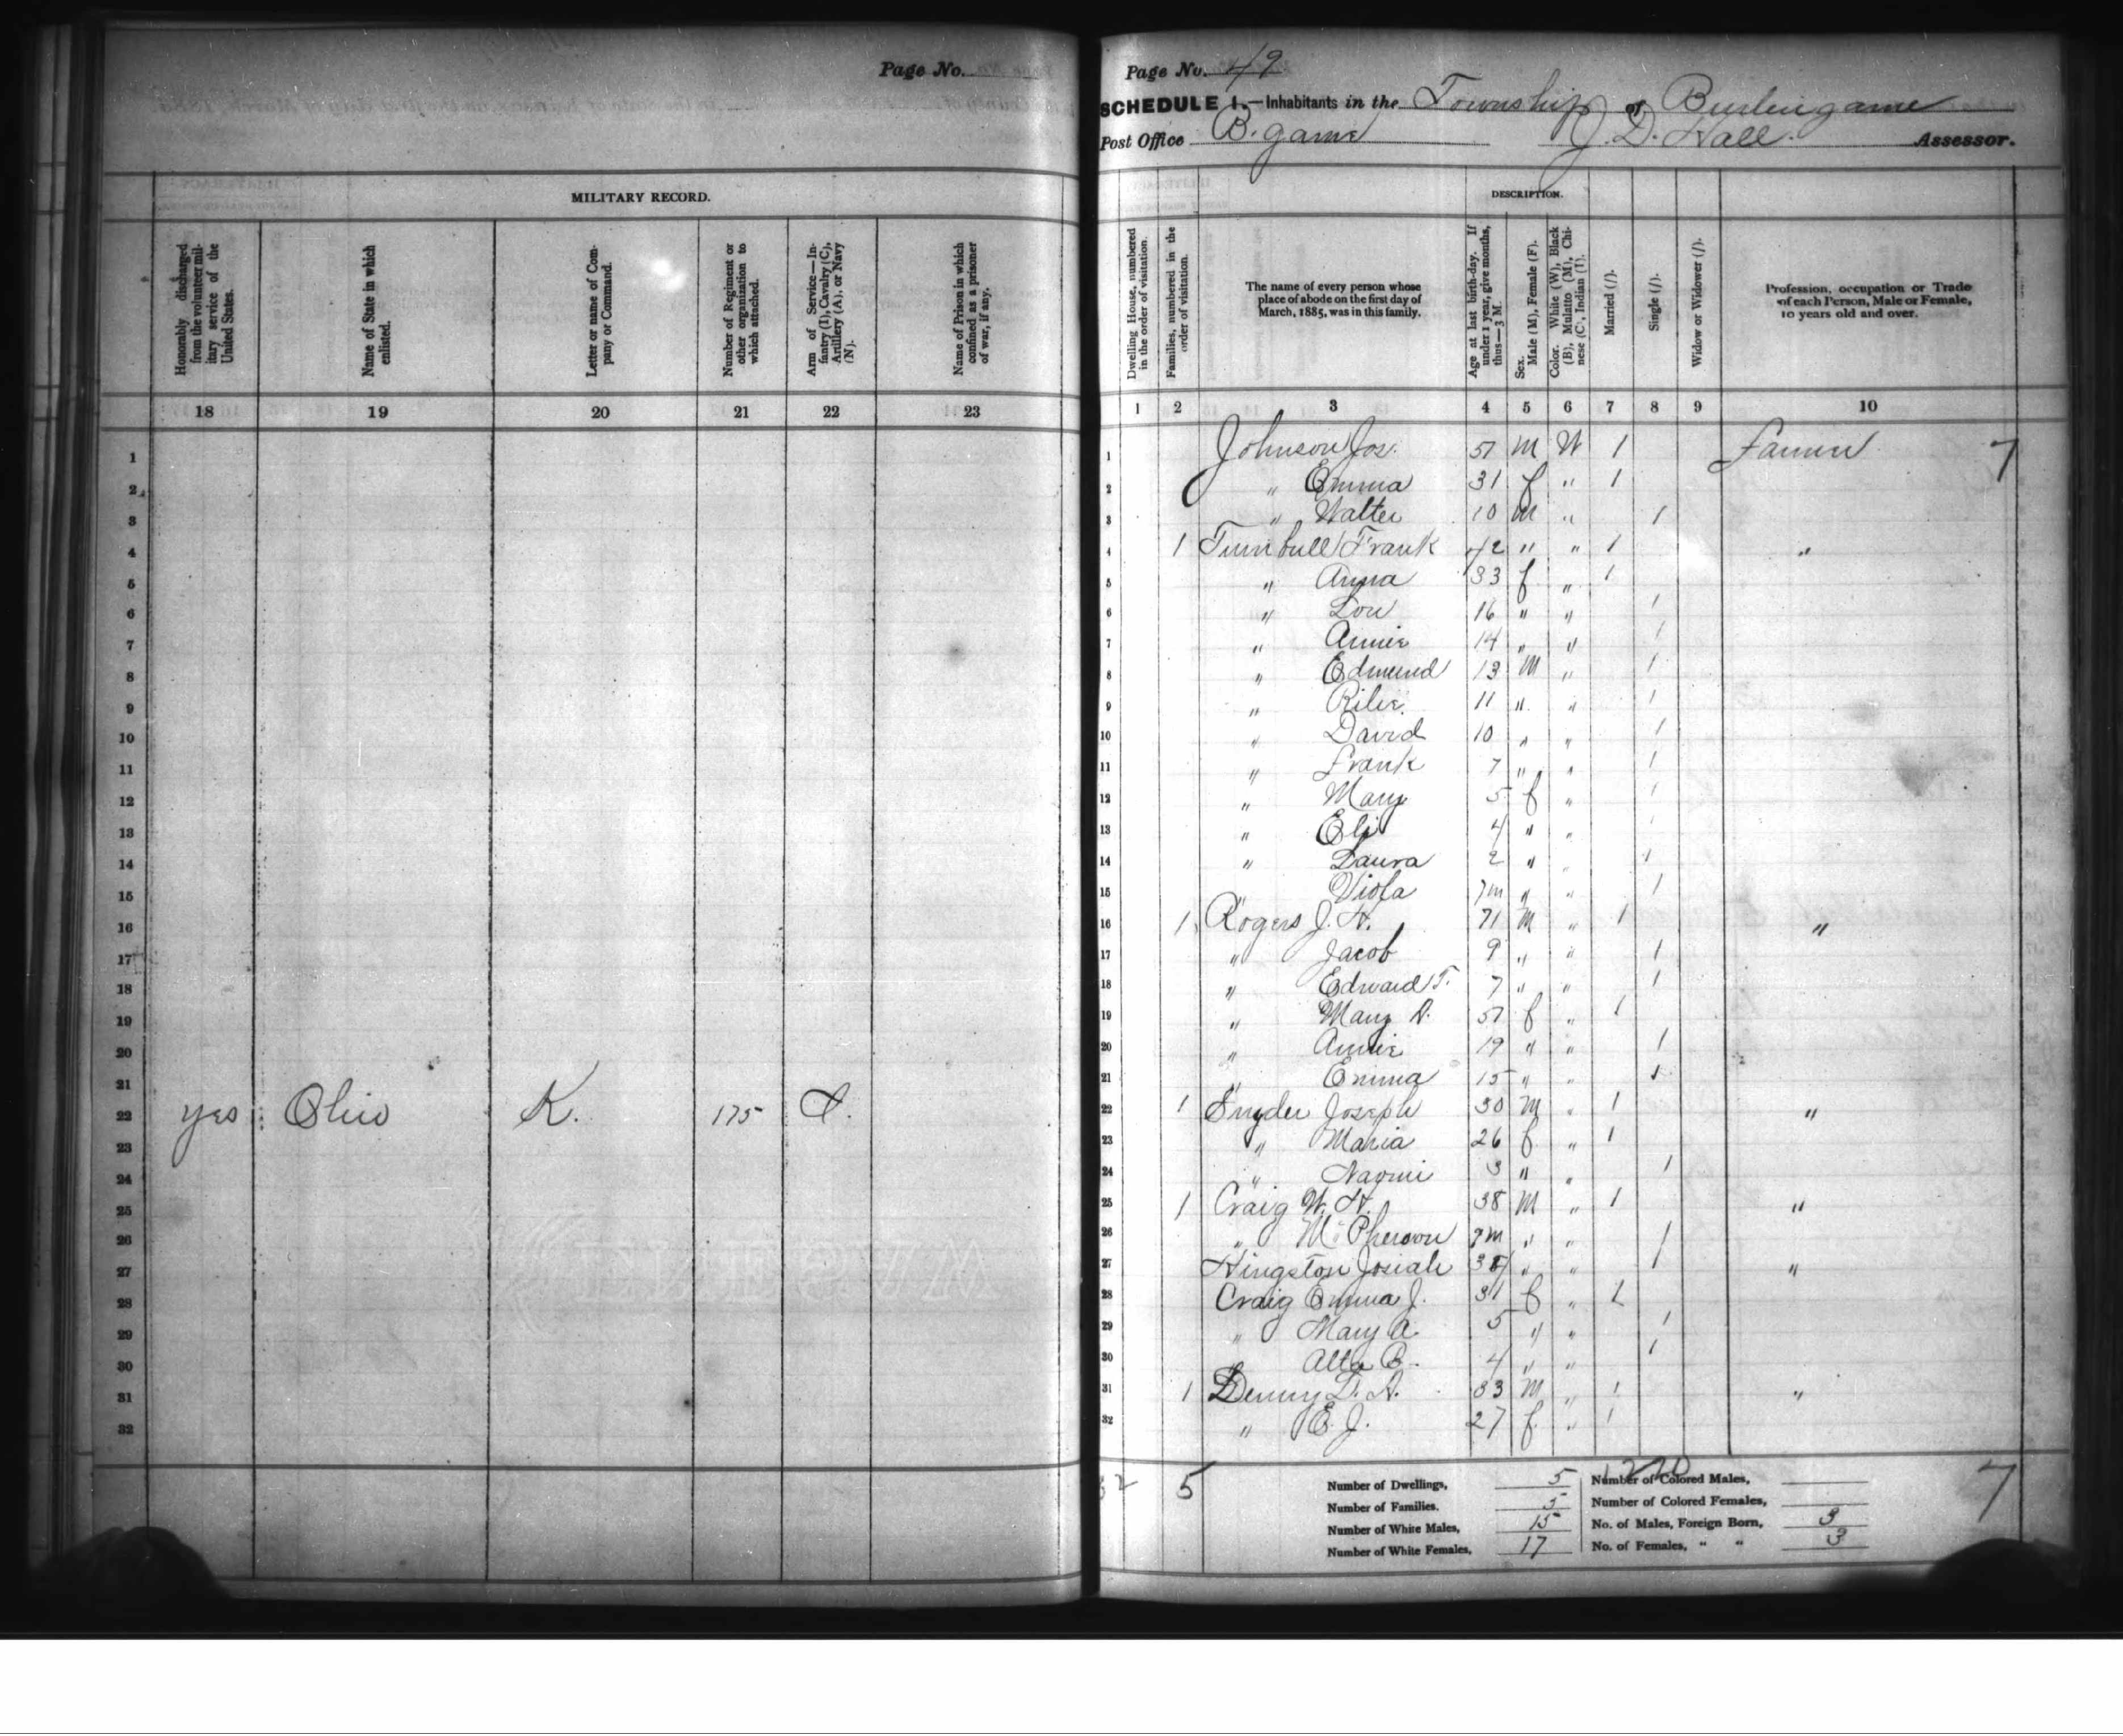 Page No.
MILITARY RECORD.
Honorably discharged from the volunteer military service of the United States.
Name of State in which enlisted.
Letter or name of Company or Command.
Number of Regiment or other organization to which attached.
Arm of Service—Infantry (I), Cavalry (C), Artillery (A), or Navy (N).
Name of Prison in which confined as a prisoner of war, if any.
18 19 20 21 22 23
1
2
3
4
5
6
7
8
9
10
11
12
13
14
15
16
17
18
19
20
21
22 yes Ohio K. 175 I.
23
24
25
26
27
28
29
30
31
32
Page No. 49
SCHEDULE 1.—Inhabitants in the Township of Burlingame
Post Office B. game J. D. Hall. Assessor.
DESCRIPTION.
Dwelling House, numbered in the order of visitation.
Families, numbered in the order of visitation.
The name of every person whose place of abode on the first day of March, 1885, was in this family.
Age at last birth-day. If under 1 year, give months, thus—3 M.
Sex. Male (M), Female (F).
Color. White (W), Black (B), Mulatto (M), Chinese (C), Indian (I).
Married (/).
Single (/).
Widow or Widower (/).
Profession, occupation or Trade of each Person, Male or Female, 10 years old and over.
1 2 3 4 5 6 7 8 9 10
1 Johnson Jos. 51 M W 1 farmer 7
2 " Emma 31 f " 1
3 " Walter 10 M " 1
4 1 Turnbull Frank 42 " " 1 "
5 " Anna 33 f " 1
6 " Lou 16 " " 1
7 " Annie 14 " " 1
8 " Edmund 13 M " 1
9 " Rilie 11 " " 1
10 " David 10 " " 1
11 " Frank 7 " " 1
12 " Mary 5 f " 1
13 " Eli 4 " " 1
14 " Laura 2 " " 1
15 " Viola 7m " " 1
16 1 Rogers J. H. 71 M " 1 "
17 " Jacob 9 " " 1
18 " Edward T. 7 " " 1
19 " Mary D. 57 f " 1
20 " Annie 19 " " 1
21 " Emma 15 " " 1
22 1 Snyder Joseph 30 M " 1 "
23 " Maria 26 f " 1
24 " Naomi 3 " " 1
25 1 Craig W. H. 38 M " 1 "
26 " McPherson 7m " " 1
27 Hingston Josiah " " 1 "
28 Craig Emma J. 31 f " 1
29 " Mary A. 5 " " 1
30 " Alta B. 4 " " 1
31 1 Denny D. A. 33 M " 1 "
32 " E. J. 27 f " 1
32 5 7
Number of Dwellings, 5 Number of Colored Males,
Number of Families. 5 Number of Colored Females,
Number of White Males, 15 No. of Males, Foreign Born, 3
Number of White Females, 17 No. of Females, " " 3